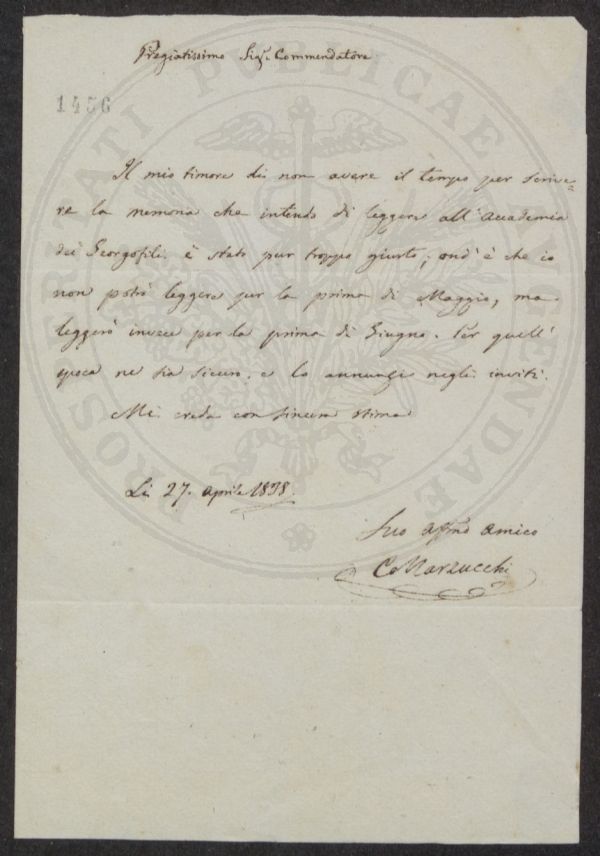 Pregiatissimo Sigr. Commendatore
1456
Il mio timore di non avere il tempo per scrive=
re la memoria che intendo di leggere all'Accademia
dei Georgofili è stato pur troppo giusto; ond'è che io
non potrò leggere per la prima di Maggio, ma
leggerò invece per la prima di Giugno. Per quell'
epoca ne sia sicuro, e lo annunzi negli inviti.
Mi creda con sincera stima
Li 27. Aprile 1838.
Suo affmo amico
C. Marzucchi
PROSPERITATI PUBLICAE AUGENDAE